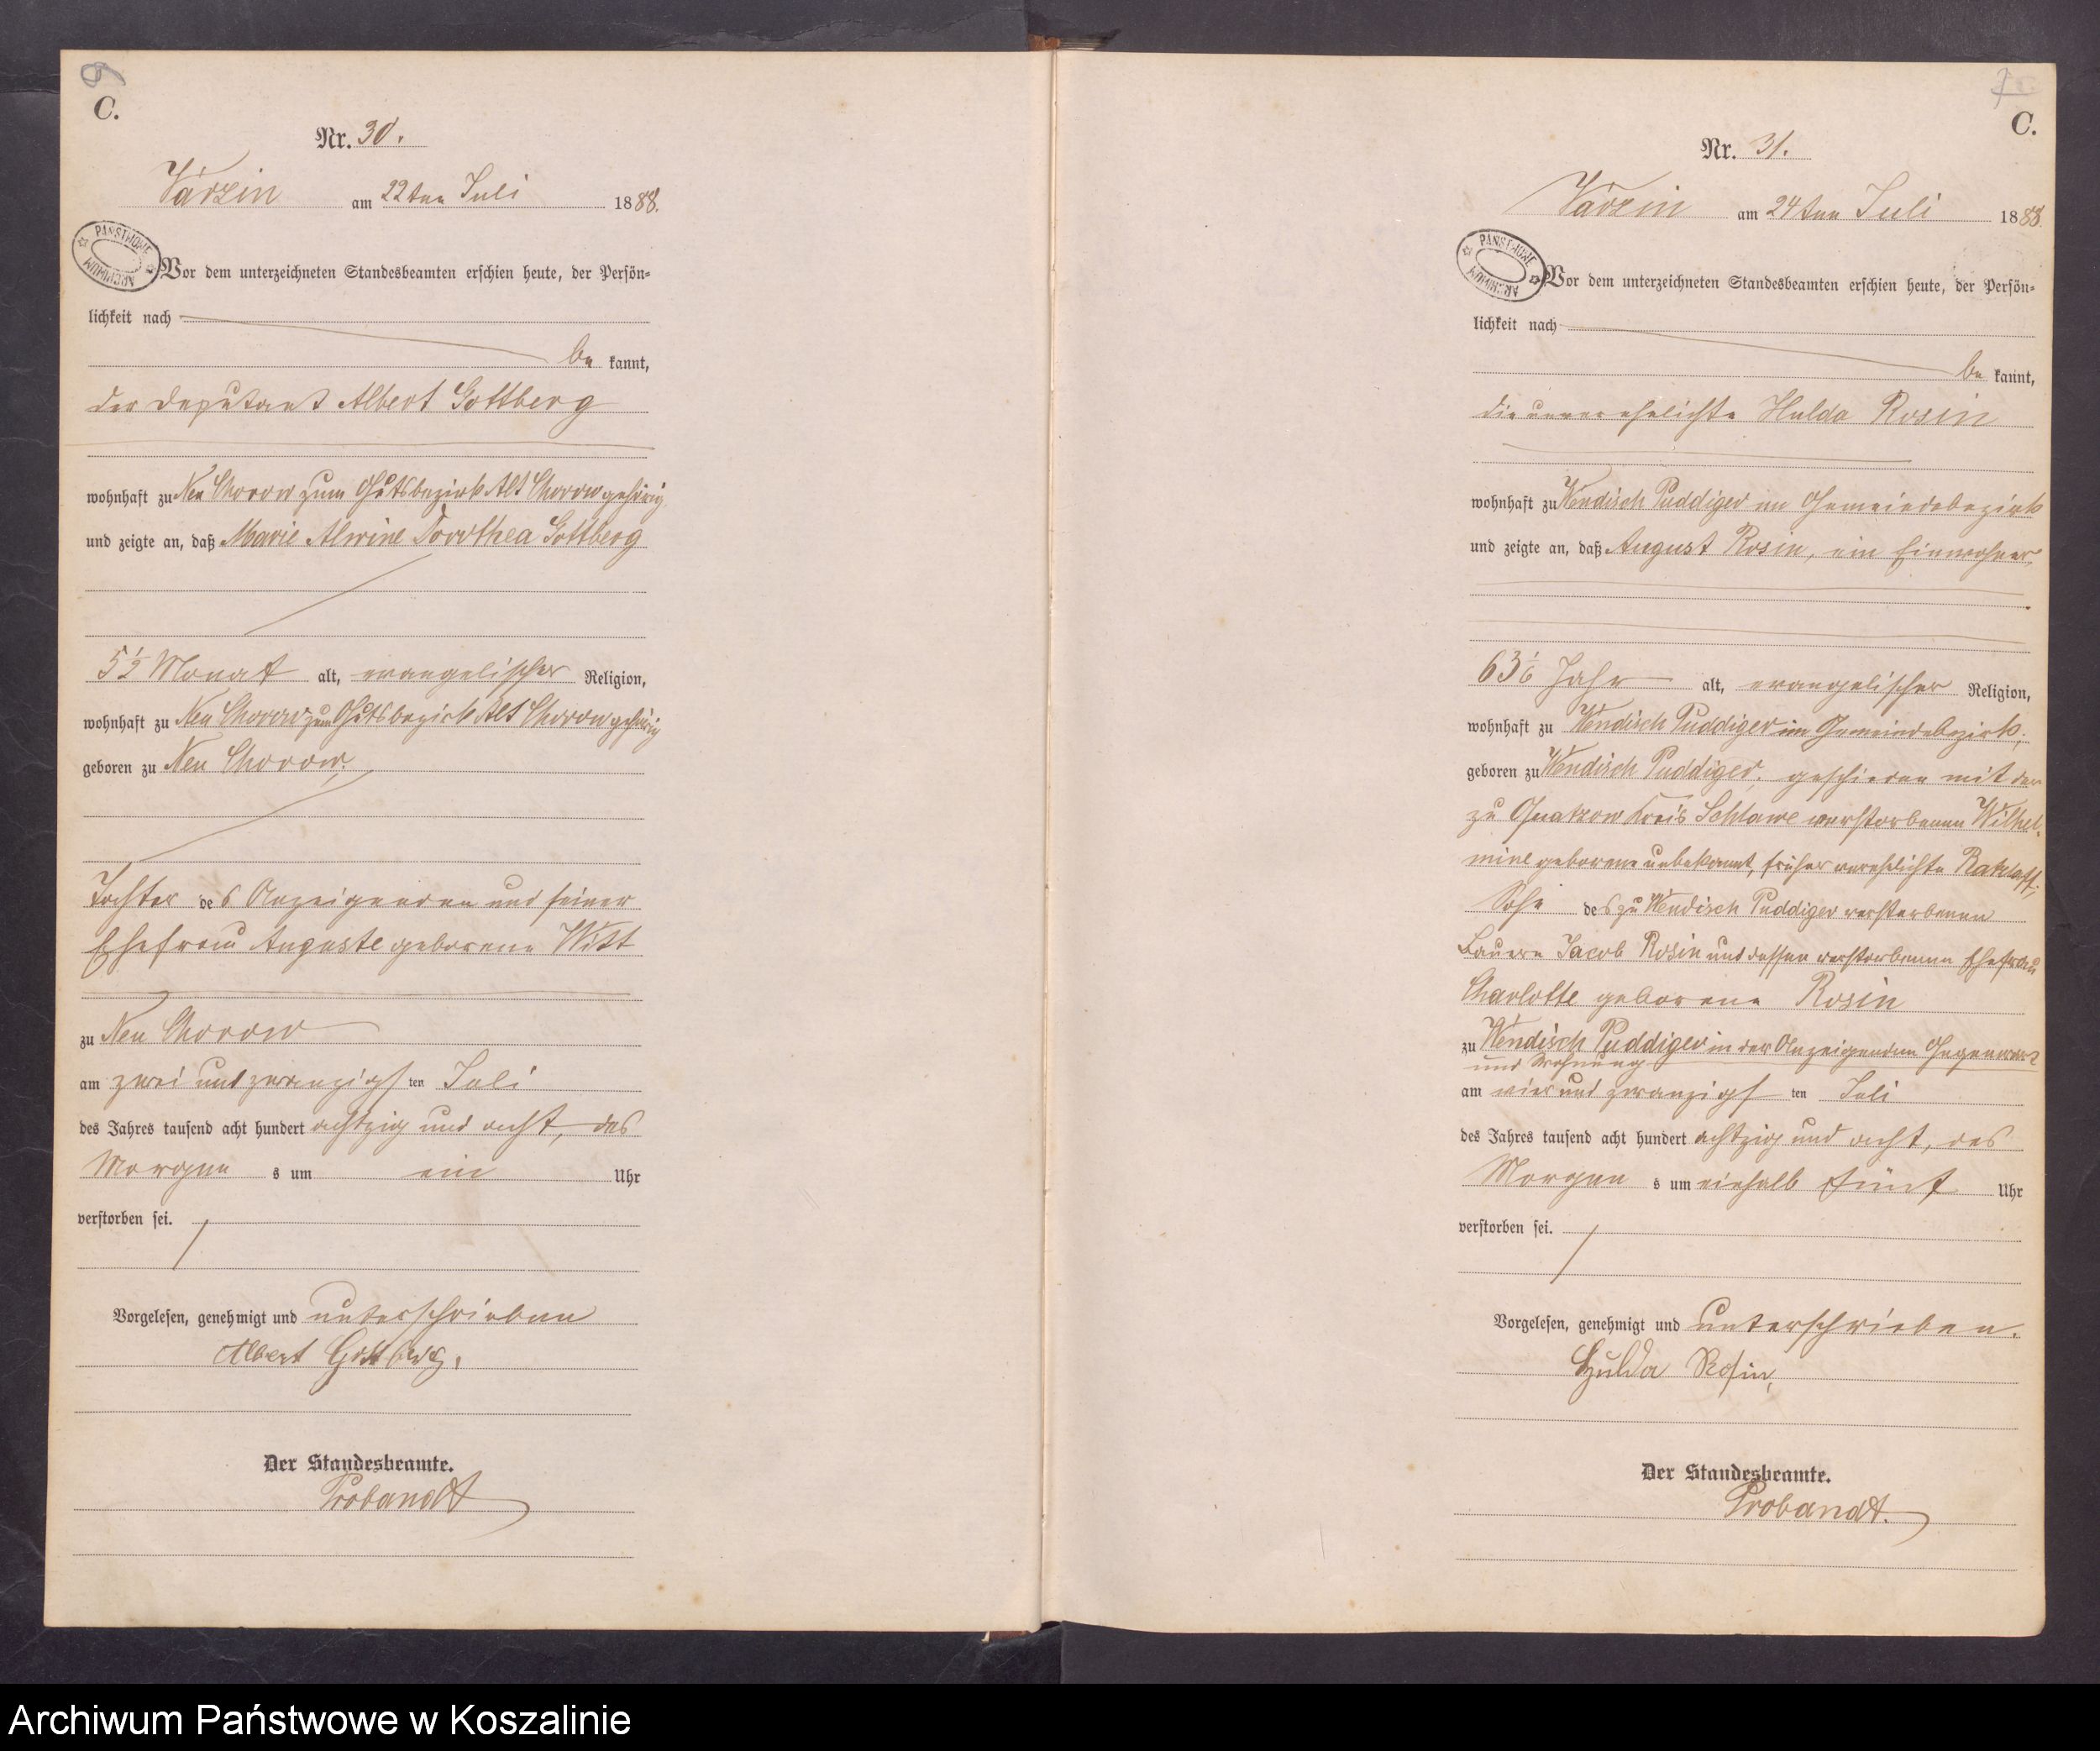 6
C.
Nr. 30.
Varzin am 22ten Juli 1888.
PAŃSTWOWE ARCHIWUM
Vor dem unterzeichneten Standesbeamten erschien heute, der Persön-
lichkeit nach
be kannt,
der Deputant Albert Gottberg
wohnhaft zu Neu Chorow zum Gutsbezirk Alt Chorow gehörig
und zeigte an, daß Marie Alwine Dorothea Gottberg
5½ Monat alt, evangelischer Religion,
wohnhaft zu Neu Chorow zum Gutsbezirk Alt Chorow gehörig
geboren zu Neu Chorow,
Tochter des Anzeigenden und seiner
Ehefrau Auguste geborene Witt
zu Neu Chorow
am zwei und zwanzigsten Juli
des Jahres tausend acht hundert achtzig und acht, des
Morgens um ein Uhr
verstorben sei.
Vorgelesen, genehmigt und unterschrieben
Albert Gottberg.
Der Standesbeamte.
Probandt
7
C.
Nr. 31.
Varzin am 24ten Juli 1888.
PAŃSTWOWE ARCHIWUM
Vor dem unterzeichneten Standesbeamten erschien heute, der Persön-
lichkeit nach
be kannt,
die unverehelichte Hulda Rosin
wohnhaft zu Wendisch Puddiger im Gemeindebezirk
und zeigte an, daß August Rosin, ein Einwohner,
63 1/6 Jahr alt, evangelischer Religion,
wohnhaft zu Wendisch Puddiger im Gemeindebezirk,
geboren zu Wendisch Puddiger, geschieden mit der
zu Quatzow Kreis Schlawe verstorbenen Wilhel-
mine geborene unbekannt, früher verehelichte
Sohn des zu Wendisch Puddiger verstorbenen
Bauern Jacob Rosin und dessen verstorbenen Ehefrau
Charlotte geborene Rosin
zu Wendisch Puddiger in der Anzeigenden Gegenwart
und Wohnung
am vier und zwanzigsten Juli
des Jahres tausend acht hundert achtzig und acht, des
Morgens um einhalb fünf Uhr
verstorben sei.
Vorgelesen, genehmigt und unterschrieben.
Hulda Rosin,
Der Standesbeamte.
Probandt.
Archiwum Państwowe w Koszalinie